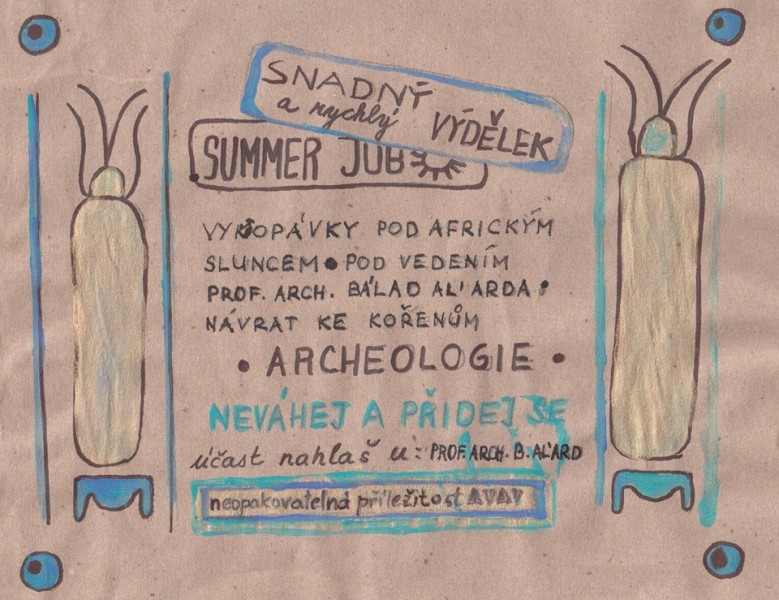 SNADNÝ
a rychlý
VÝDĚLEK
SUMMER JOB
VYKOPÁVKY POD AFRICKÝM
SLUNCEM • POD VEDENÍM
PROF. ARCH. BÁLAD AL'ARDA •
NÁVRAT KE KOŘENŮM
• ARCHEOLOGIE •
NEVÁHEJ A PŘIDEJ SE
účast nahlaš u: PROF. ARCH. B. AL'ARD
neopakovatelná příležitost